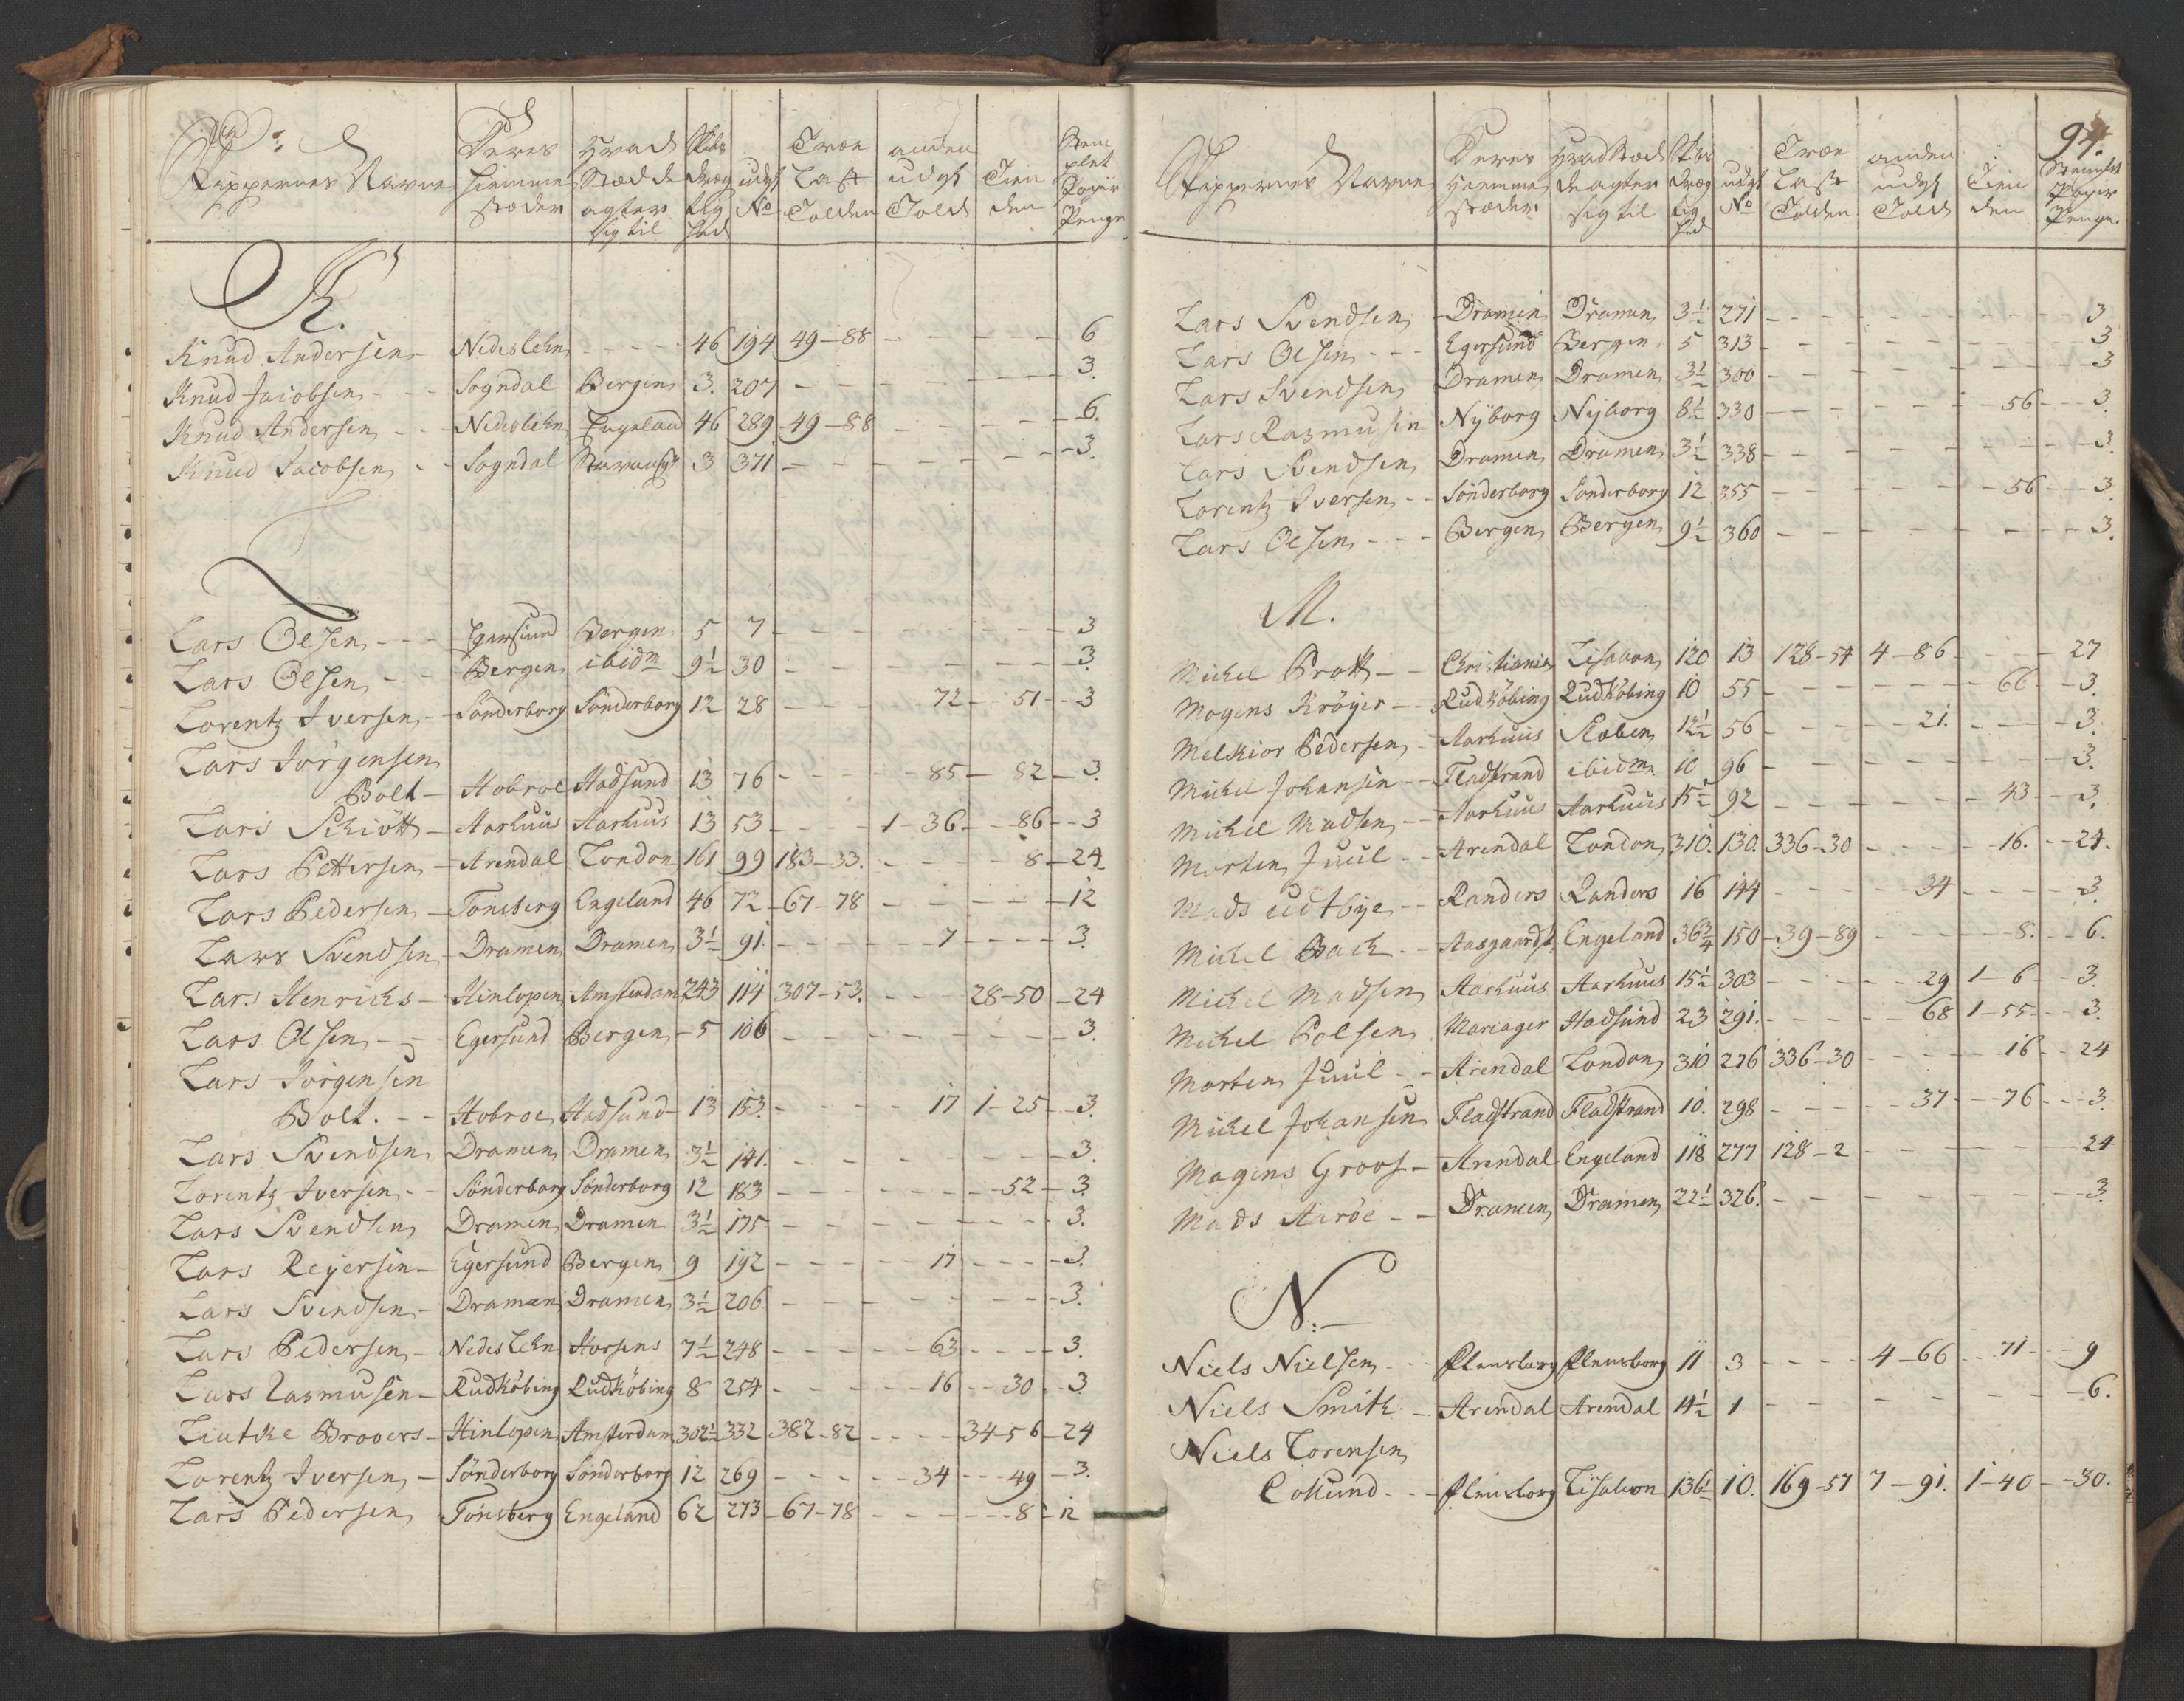 Skippernes Navne | Deres Hiemme stæder | Hvad Stæd de agter sig til | Skibs Dræg tig hed | udgl No | Træe Last Tolden | anden udgl Told | Tien den | Stem plet Papir Penge
K.
Knud Andersen - Nedeslehn - - - - 46 194 49-88 - - - - 6
Knud Jacobsen - - Sogndal Bergen 3. 207 - - - - 3.
Knud Andersen - - Nedeslehn Engeland 46 289 49-88 - - - - 6.
Knud Jacobsen - - Sogndal 3 371 - - - - 3.
L
Lars Olsen - - - Egersund Bergen 5 7 - - - - 3
Lars Olsen - - Bergen ibidm 9½ 30 - - - - 3.
Lorentz Iversen - Sönderborg Sönderborg 12 28 - - - 72 - 51 - 3
Lars Jörgensen
Bolt - Hobroe Hadsund 13 76 - - - - 85 - 82 - 3.
Lars Schiött - Aarhuus Aarhuus 13 53 - - - 1-36 - - 86 - 3
Lars Pettersen - Arendal London 161 99 183-33. - - - - 8 - 24
Lars Pedersen - Tonsberg Engeland 46 72 67-78 - - - - 12
Lars Svendsen - Dramen Dramen 3½ 91. - - - - 7 - - - 3.
Lars Henrichs - Hinlopen Amsterdam 243 114 307-53. - - - 28-50 - 24
Lars Olsen - - Egersund Bergen - 5 106 - - - - 3.
Lars Jörgensen
Bolt. - - Hobroe Hadsund - 13 153. - - - - 17 1-25 - 3.
Lars Svendsen Dramen Dramen 3½ 141. - - - - 3.
Lorentz Iversen - - Sönderborg Sönderborg 12 183 - - - - 52 - 3
Lars Svendsen Dramen Dramen 3½ 175 - - - - 3.
Lars Reijersen - Egersund Bergen 9 192 - - - - 17 - - - 3.
Lars Svendsen - Dramen Dramen 3½ 206 - - - - 3.
Lars Pedersen - Nedes Lehn Horsens 7½ 248 - - - - 63 - - - 3.
Lars Rasmusen - Rudköbing Rudköbing 8 254 - - - - 16 - - 30 - 3
Liutche Brooers - Hinlopen Amsterdam 302½ 332 382-82 - - - - 34-56 - 24
Lorentz Iversen - Sönderborg Sönderborg 12 269 - - - - 34 - - - 49 - 3.
Lars Pedersen Tonsberg Engeland 62 273 67-78 - - - - 8 - 12
94.
Skippernes Navne | Deres Hiemme stæder | Hvad Stæd de agter sig til | Skibs Dræg tig hed | udgl No | Træe Last Tolden | anden udgl Told | Tien den | Stemplet Papir Penge.
Lars Svendsen - Dramen Dramen 3½ 271 - - - - 3
Lars Olsen - - - Egersund Bergen 5 313 - - - - 3
Lars Svendsen Dramen Dramen 3½ 300 - - - - 3
Lars Rasmusen Nÿborg Nÿborg 8½ 330 - - - - 56 - - 3.
Lars Svendsen Dramen Dramen 3½ 338 - - - - 3.
Lorentz Iversen - - Sönderborg Sonderborg 12 355 - - - - 56 - - 3.
Lars Olsen - - - Bergen Bergen 9½ 360 - - - - 3.
M.
Michel Prott - - Christiania Lisabon 120 13 128-54 4-86 - - - 27
Mogens Kröÿer - - Rudköbing Rudköbing 10 55 - - - - 66 - - 3.
Melkior Pedersen - Aarhuus 12½ 56 - - - - 21. - - - 3.
Michel Johansen - - Fladstrand ibidm. 10 96 - - - - 3.
Michel Madsen - - Aarhuus Aarhuus 15½ 92 - - - - 43 - - 3.
Morten Juul - - Arendal London 310. 130. 336-30 - - - - 16. - - 24.
Mads Udtbÿe - - Randers Randers 16 144 - - - - 34 - - - 3
Michel Bach - - Aasgaardst. Engeland 36¾ 150 39-89 - - - - 8. - - 6.
Michel Madsen Aarhuus Aarhuus 15½ 303 - - - - 29 1-6 - 3.
Michel Polsen Mariager Hadsund 23 291. - - - - 68 1-55 - - 3.
Morten Juul - - Arendal London 310 276 336-30 - - - - 16 - - 24
Michel Johansen Fladstrand Fladstrand 10. 298 - - - - 37 - - 76 - - 3.
Magens Groos - Arendal Engeland 118 277 128-2 - - - - 24
Mads Aaröe - - Dramen Dramen 22½ 326. - - - - 3.
N.
Niels Nielsen - - - Flensborg Flensborg 11 3 - - - - 4-66 - - 71 - - 9
Niels Smith - - Arendal Arendal 14½ 1 - - - - 6.
Niels Lorensen
Collund - - - Flensborg Lisabon 136½ 10. 169-57 7-91. 1-40 - - 30.